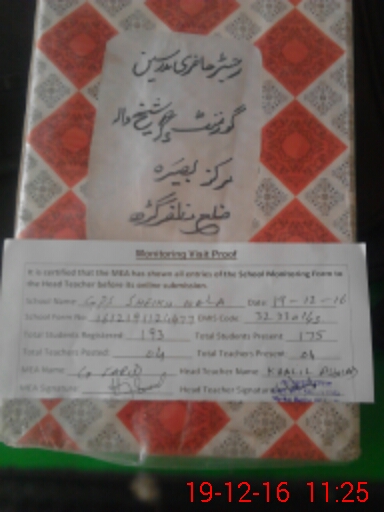 رجسٹر حاضری مدرسین
گورنمنٹ شیخ والہ
مرکز بصیرہ
ضلع مظفر گڑھ
Monitoring Visit Proof
It is certified that the MEA has shown all entries of the School Monitoring Form to
the Head Teacher before its online submission.
School Name: GPS SHEIKH WALA Date: 19-12-16
School Form No: EMIS Code:
Total Students Registered: 193 Total Students Present: 175
Total Teachers Posted: 04 Total Teachers Present: 04
MEA Name: Head Teacher Name: KHALIL AHMAD
MEA Signature: Head Teacher Signature:
19-12-16 11:25